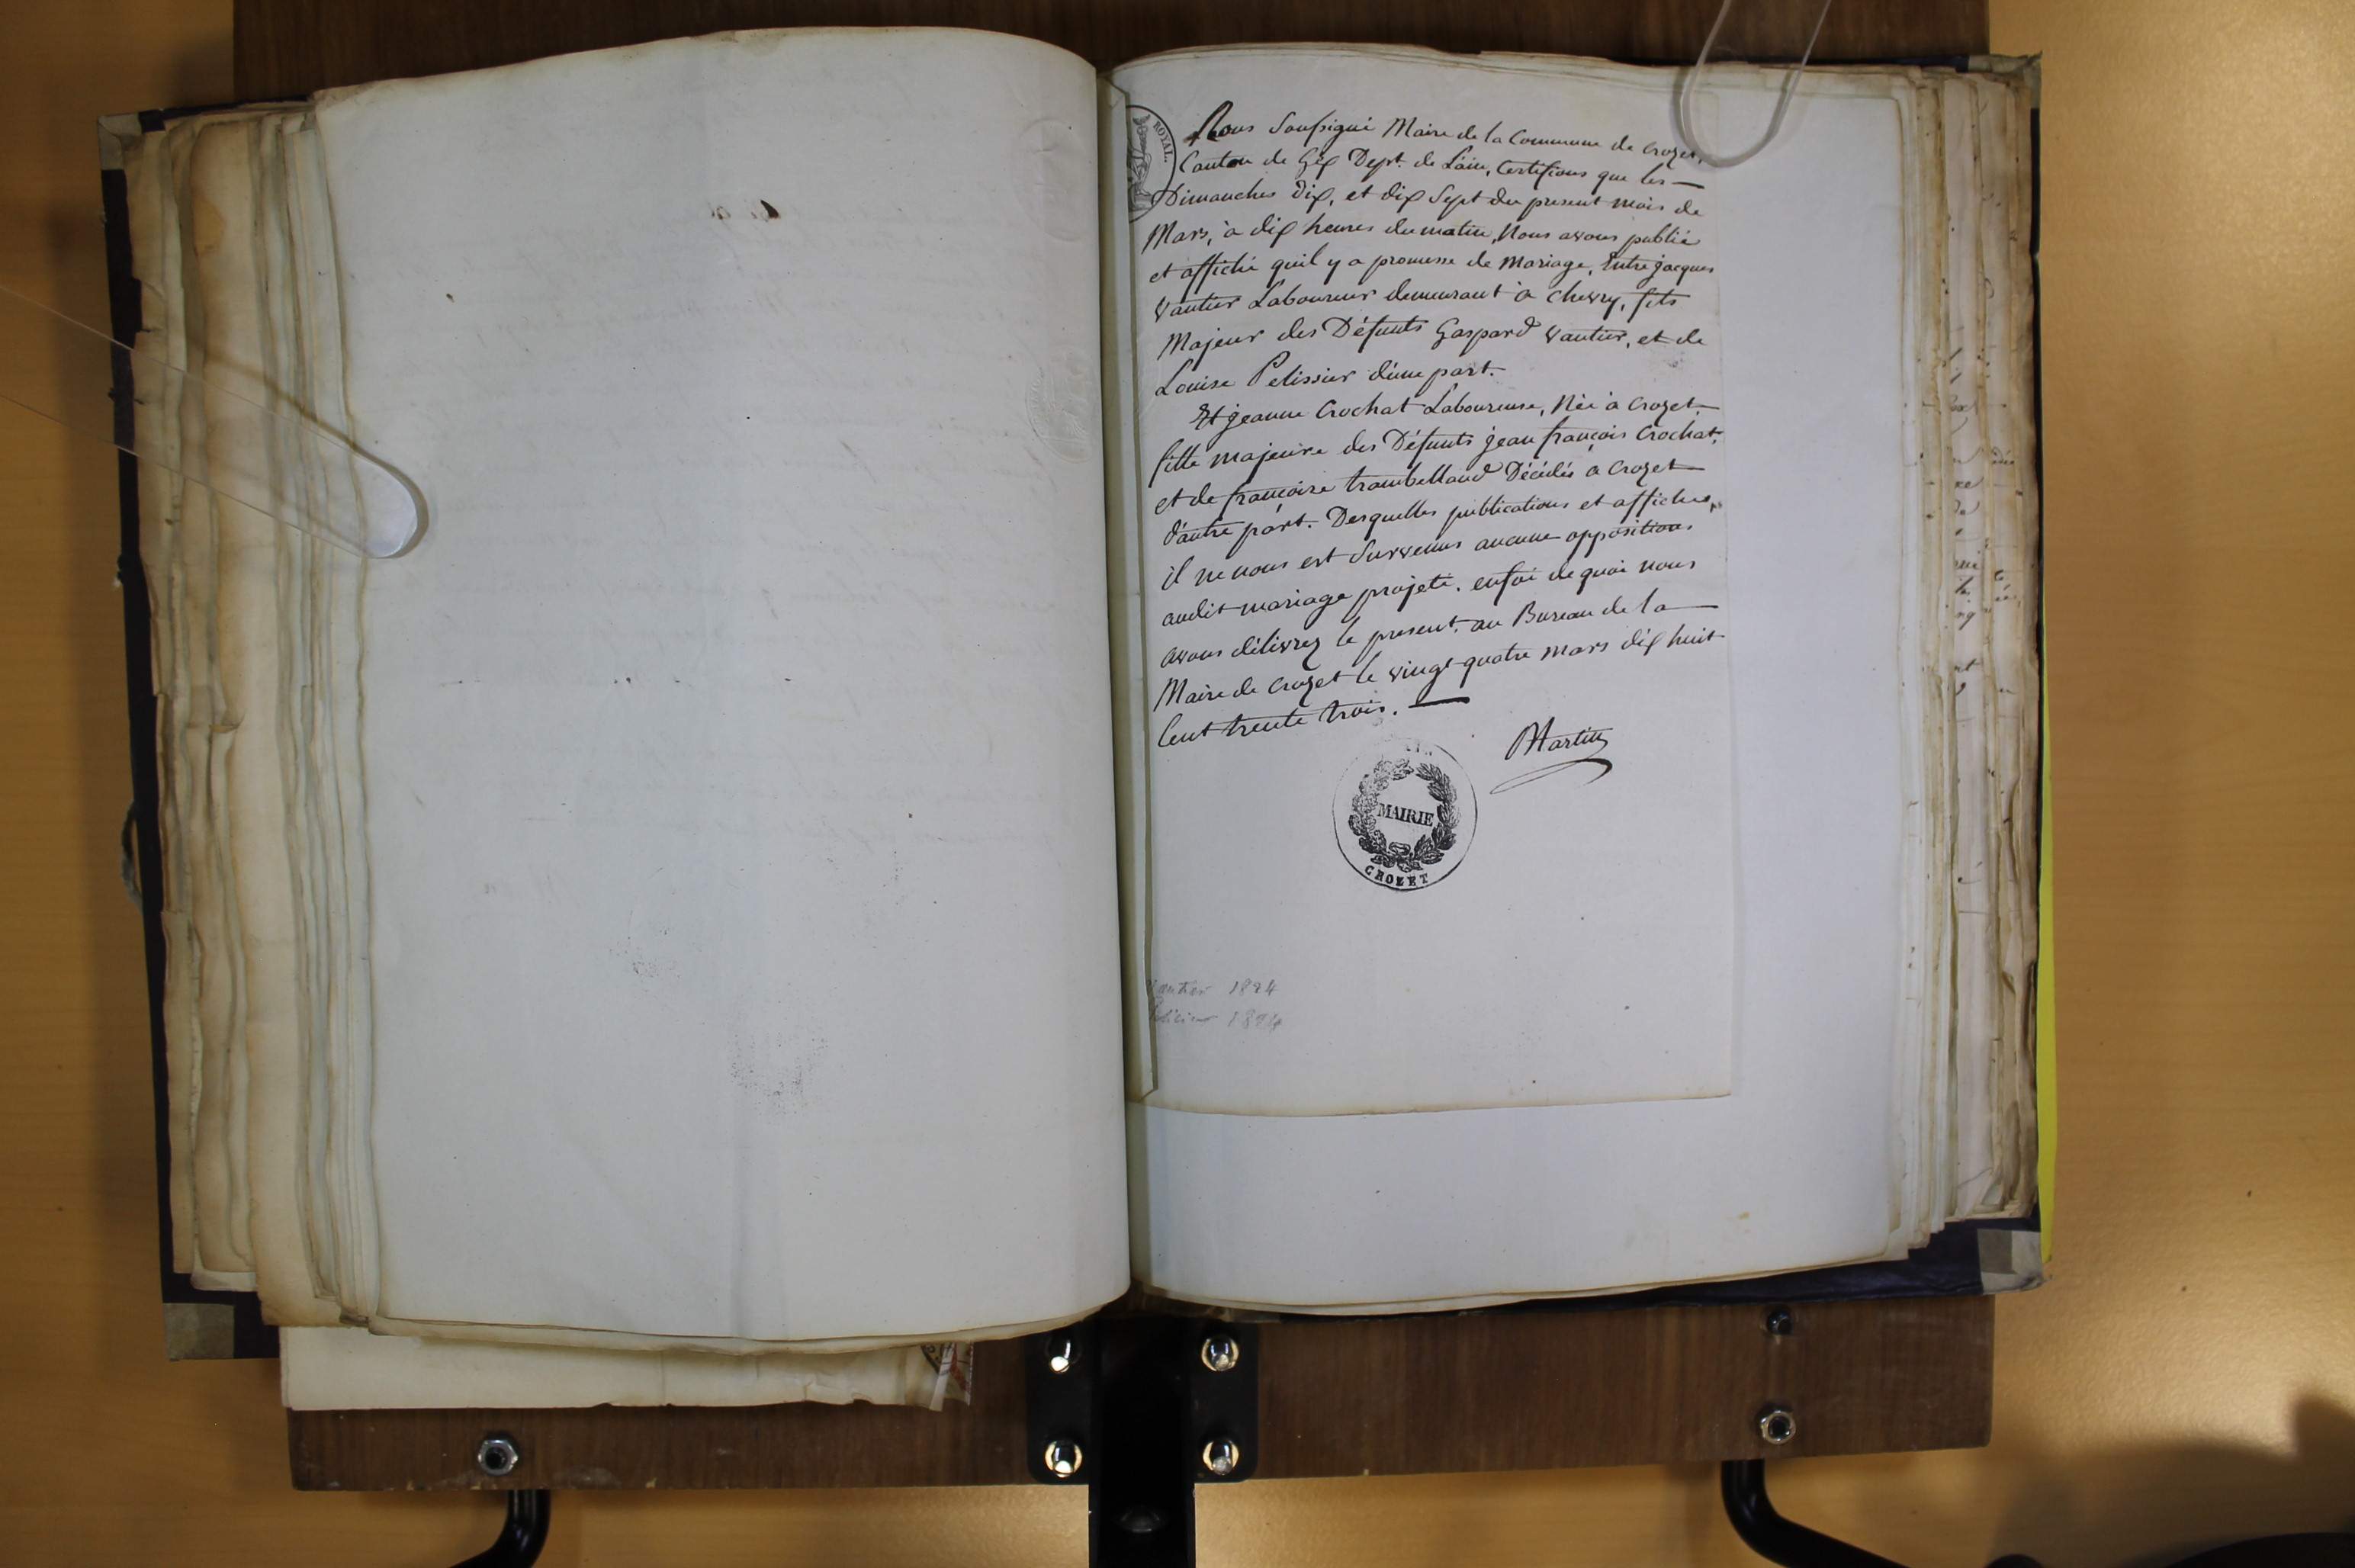 ROYAL.
Nous Soussigné Maire de la Commune de Crozet,
Canton de Gex Dept. de L'ain, Certifions que les
Dimanches dix, et dix Sept du present mois de
Mars, à dix heures du matin, Nous avons publié
et affiché quil y a promesse de Mariage, Entre jacques
Vautier Laboureur demeurant à Chevry, fils
Majeur des Défunts Gaspard Vautier, et de
Louise Pelissier d'une part.
Et jeanne Crochat Laboureuse, Née à Crozet.
fille majeure des Défunts jean françois Crochat,
et de françoise trambelland Décédés à Crozet
d'autre part. Desquelles publications et affiches,
il ne nous est Survenus aucune oppositions
audit mariage projeté. enfoi de quoi nous
avons délivrez le present. au Bureau de la
Maire de Crozet le vingt quatre mars dix huit
Cent trente trois.
Martin
MAIRIE
CROZET
Vautier 1824
1824